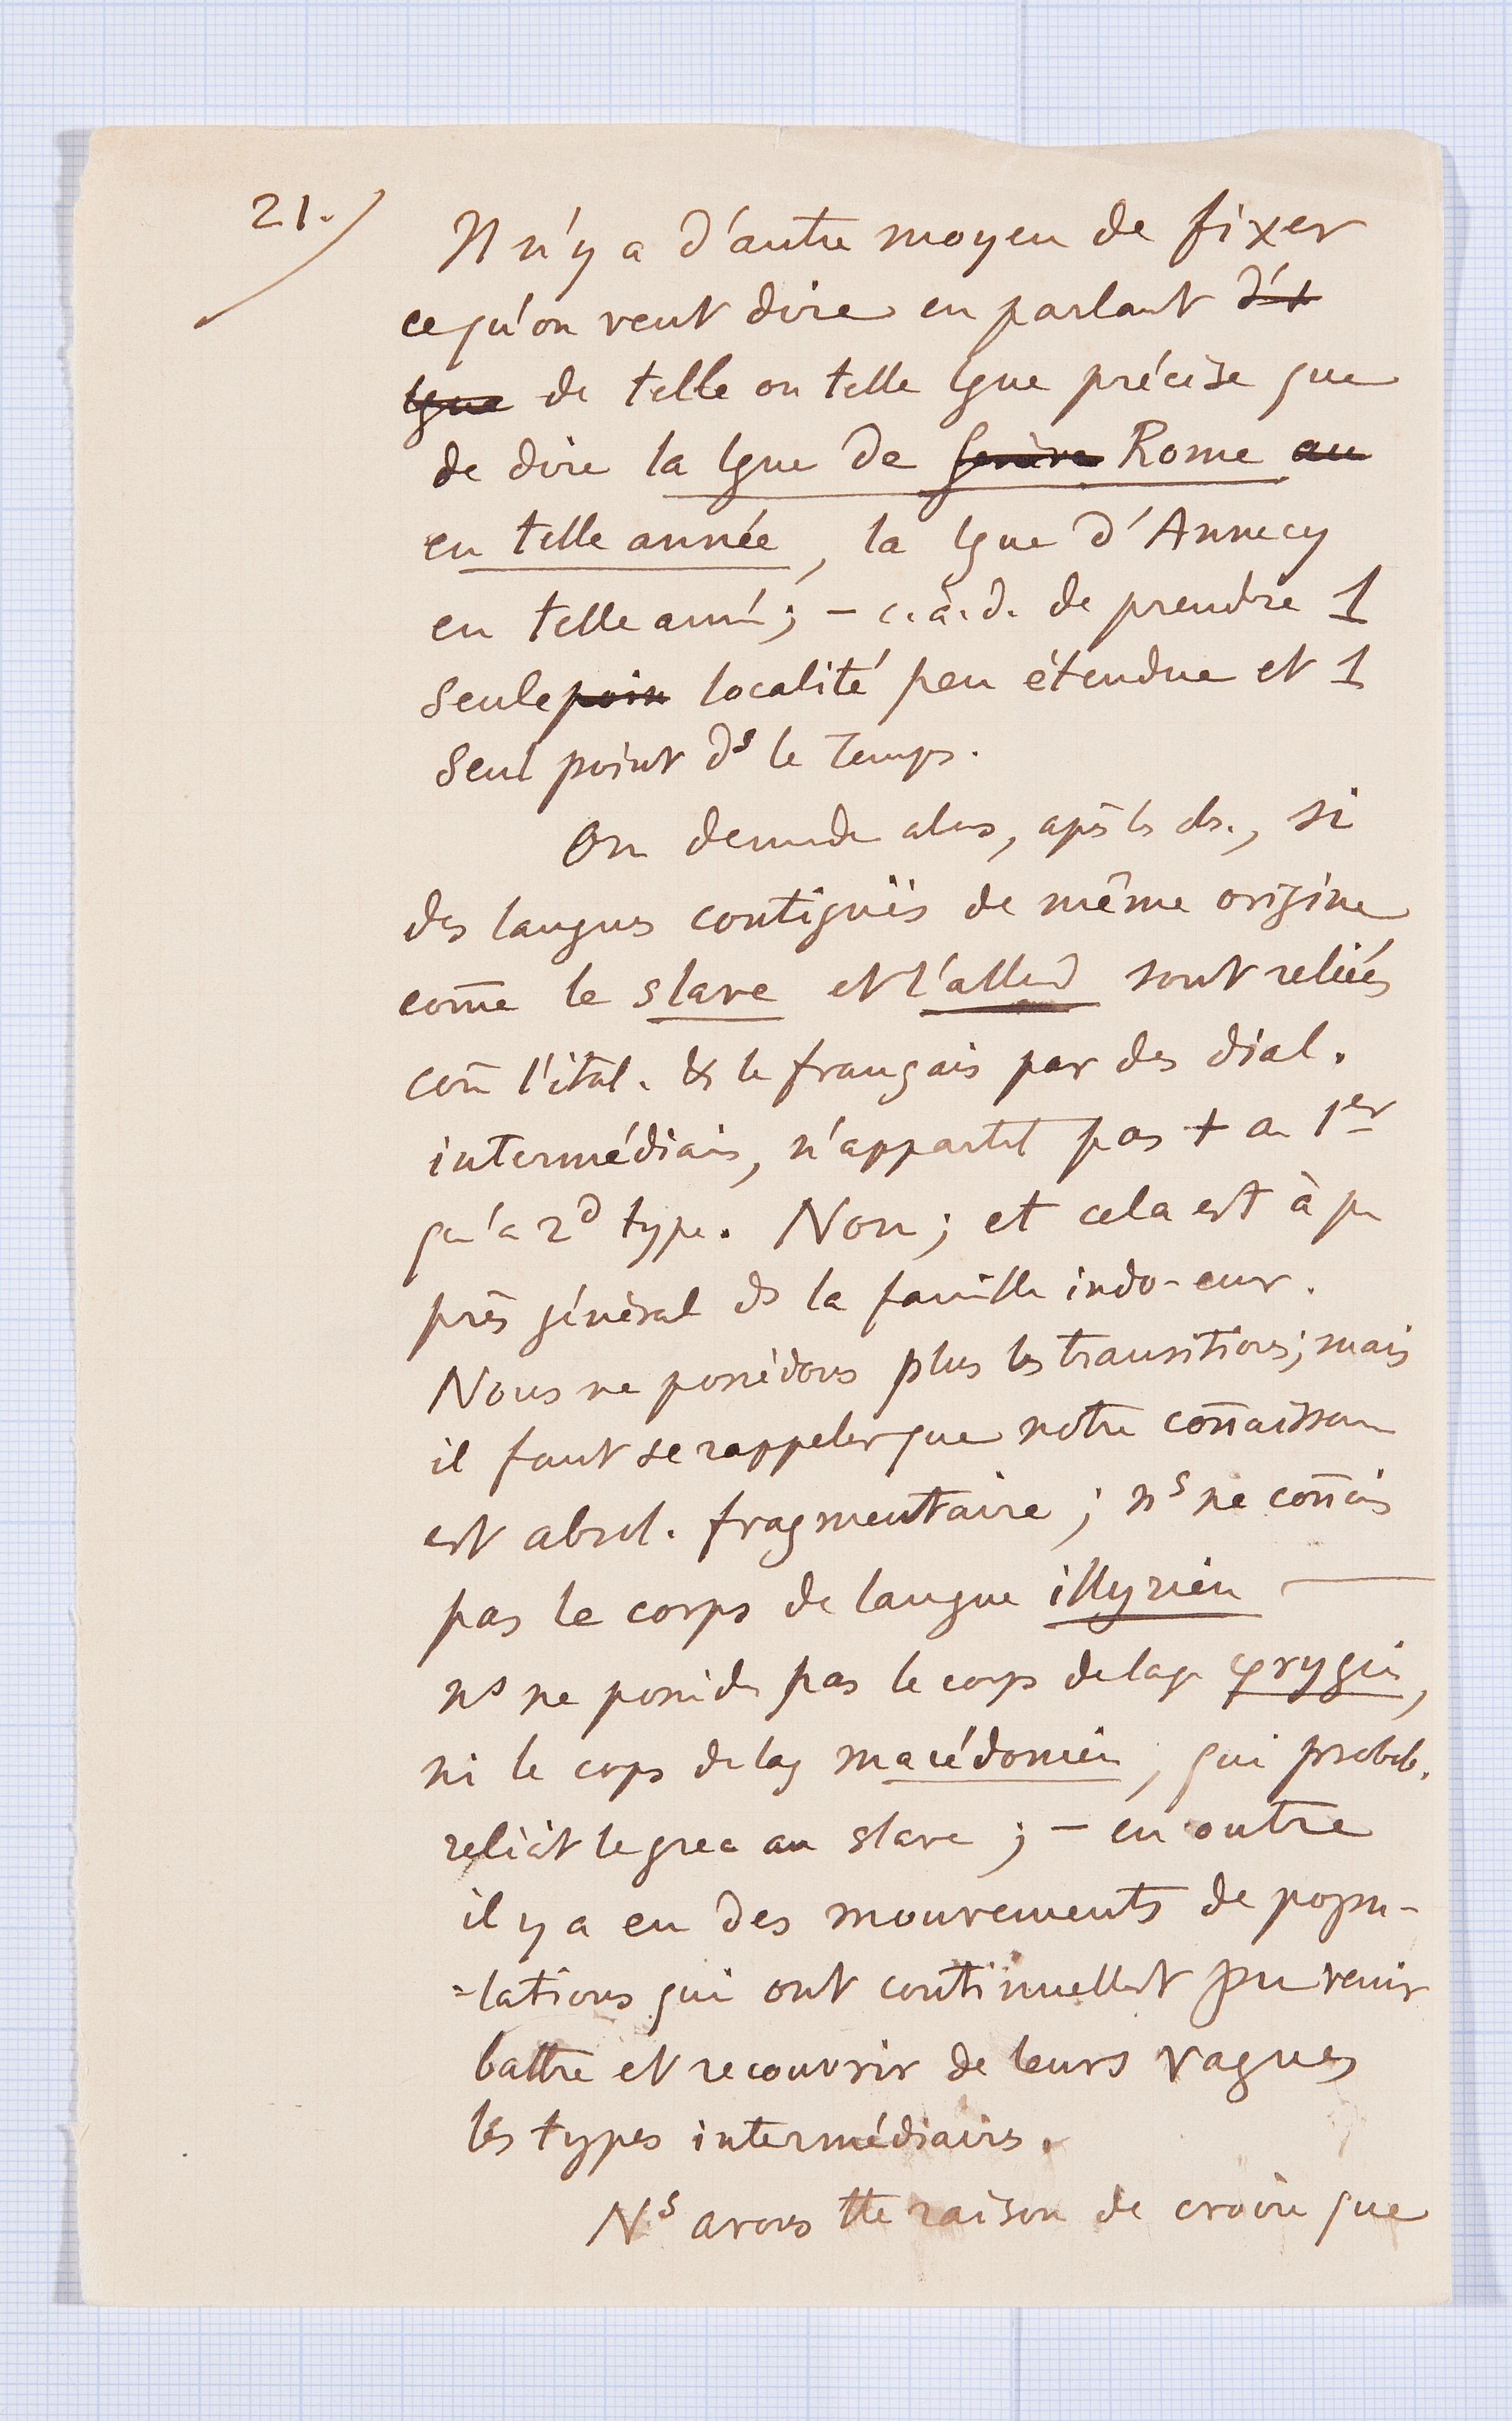 21./
Il n'y a d'autre moyen de fixer
ce qu'on veut dire en parlant d'1
lgue de telle ou telle lgue précise que
de dire la lgue de Genève Rome au
en telle année, la lgue d'Annecy
en telle anné; – c.à.d. de prendre 1
seule poin localité peu étendue et 1
seul point ds le temps.
On demande alors, après cela, si
des langues contiguës de même origine
com̄e le slave et l'allnd sont reliées
com̄ l'ital. & le français par des dial.
intermédiaires, n'appartt pas + au 1er
qu'au 2d type. Non; et cela est à peu
près général ds la famille indo-eur.
Nous ne possédons plus les transitions; mais
il faut se rappeler que notre con̄aissance
est absol. fragmentaire; ns ne con̄ais
pas le corps de langue illyrien —
ns ne possédns pas le corps de lage φrygien,
ni le corps de lag macédonien, qui probab.
reliait le grec au slave; – en outre
il y a eu des mouvements de popu-
=lations qui ont continuellent pu venir
battre et recouvrir de leurs vagues
les types intermédiaires.
Ns avons tte raison de croire que